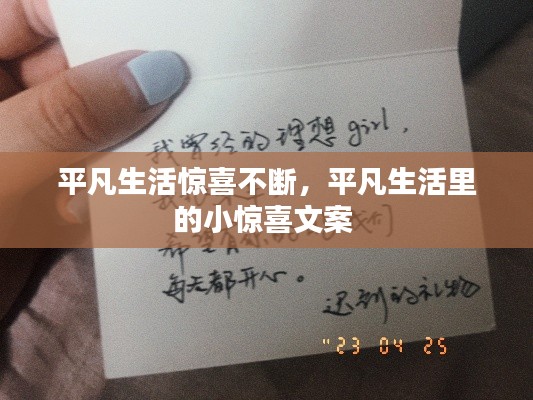 我曾经的理想girl，
平凡生活惊喜不断，平凡生活里
的小惊喜文案
每天都开心。
迟到的礼物
"23 04 25